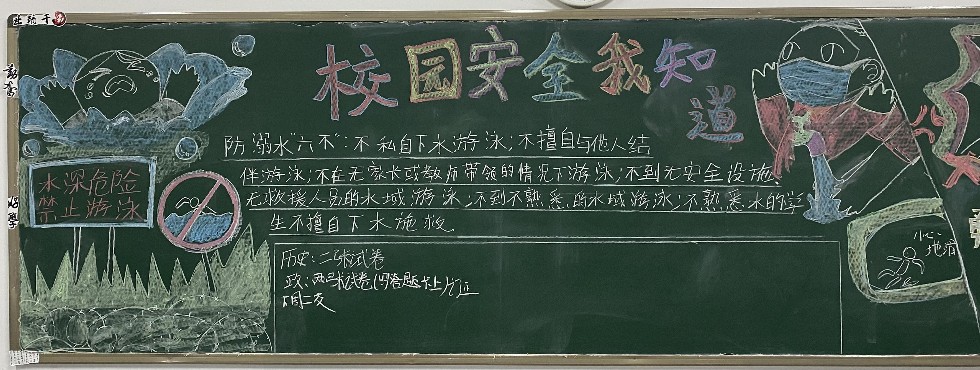 校园安全我知道
防溺水"六不":不私自下水游泳;不擅自与他人结
伴游泳;不在无家长或教师带领的情况下游泳;不到无安全设施、
无救援人员的水域游泳;不到不熟悉的水域游泳;不熟悉水的学
生不擅自下水施救.
水深危险
禁止游泳
历史:二张试卷
政:两张试卷(写答题卡上)
周二交
小心
地滑